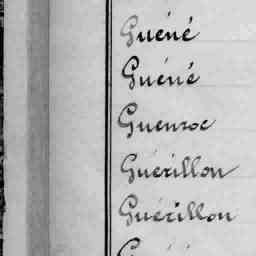 Guéné
Guéné
Guenroc
Guérillon
Guérillon